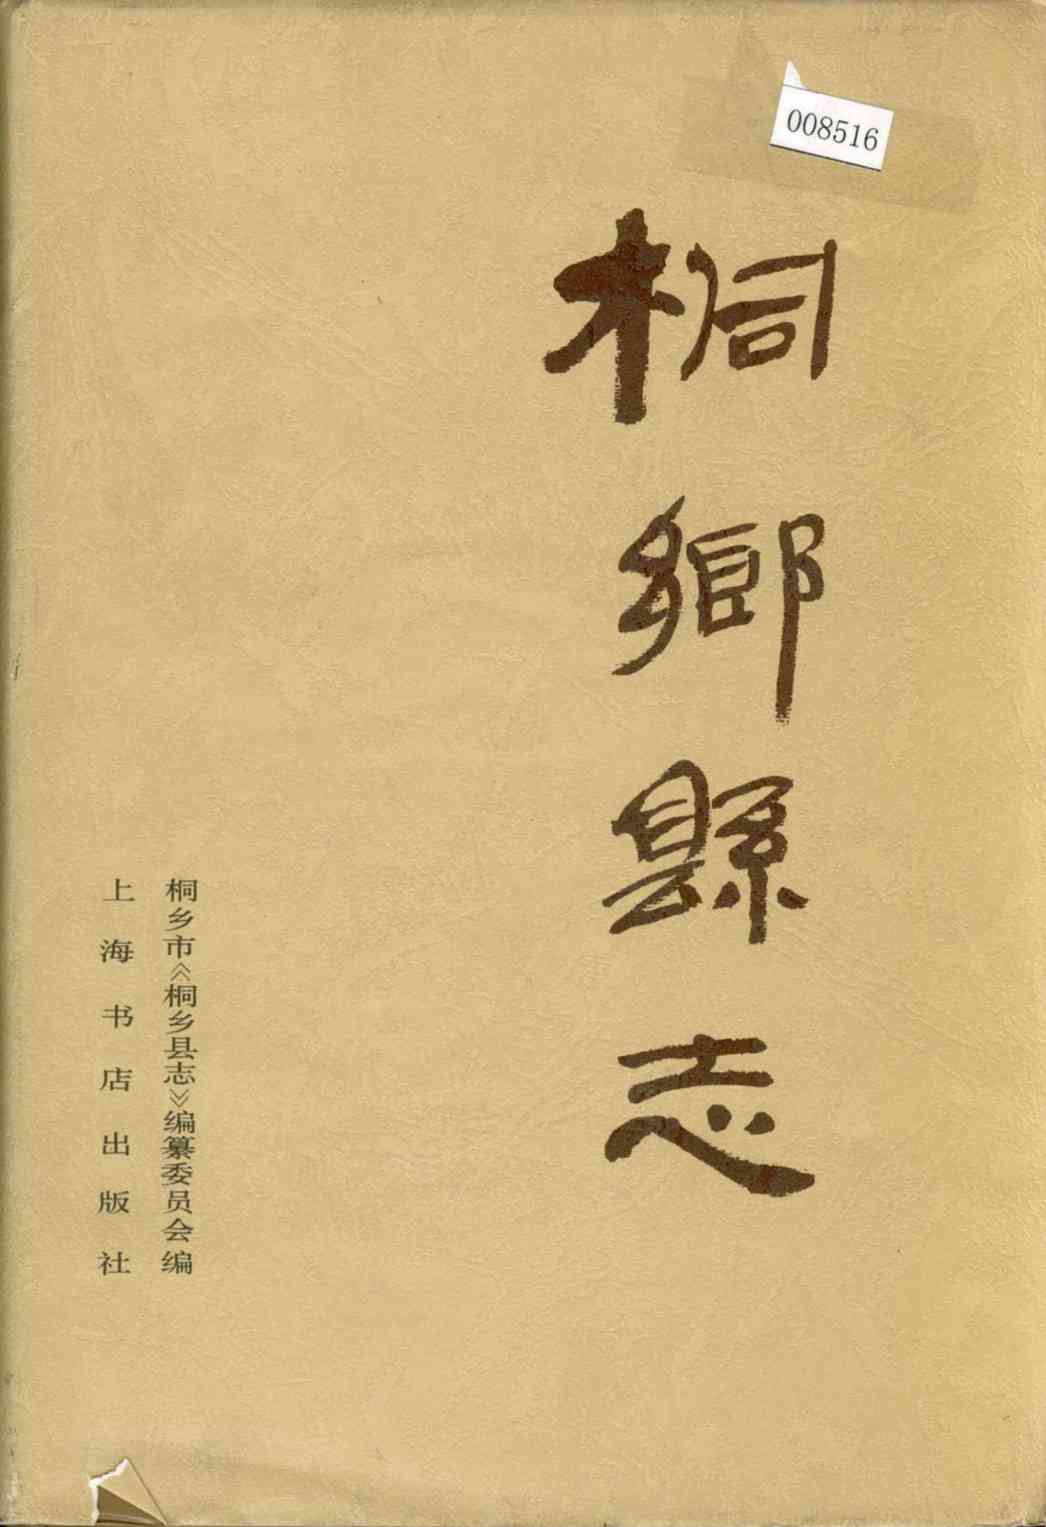 008516
桐鄉縣志
桐乡市《桐乡县志》编纂委员会编
上海书店出版社